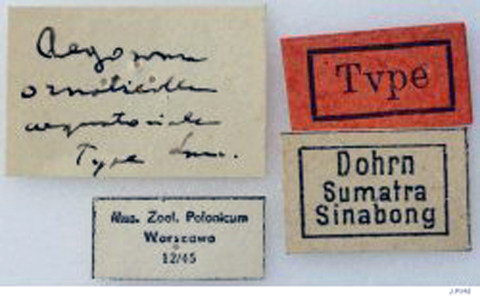 Aegosoma
ornaticolle
aequatoriale
Type Lnn.
Type
Dohrn
Sumatra
Sinabong
Mus. Zool. Polonicum
Warszawa
12/45